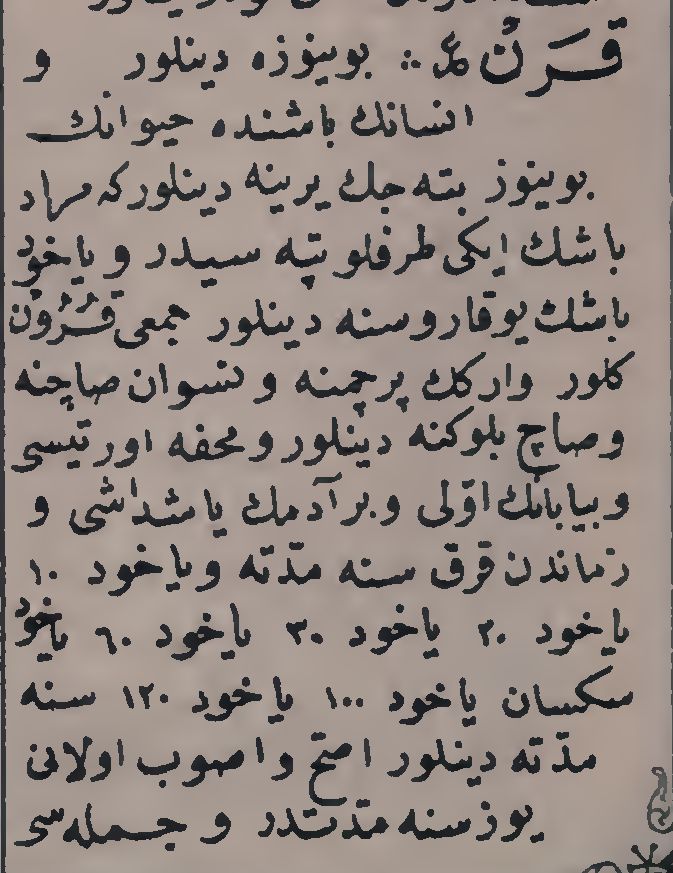 قَرَنْ ؞ بوینوزه دینلور و
انسانك باشنده حیوانك
بوینوز بته جك یرینه دینلور كه مراد
باشك ایكی طرفلو تپه سیدر و یاخود
باشك یوقاروسنه دینلور جمعی قُرُوْنْ
كلور واركك پرچمنه و نسوان صاچنه
و صاچ بلوكنه دینلور و محفه اورتیسی
و بیابانك اوّلی و بر آدمك یاشداشی و
زماندن قرق سنه مدّته و یاخود ١٠
یاخود ٢٠ یاخود ٣٠ یاخود ٦٠ یاخود
سكسان یاخود ١٠٠ یاخود ١٢٠ سنه
مدّته دینلور اصح و اصوب اولانی
یوز سنه مدّتدر و جمله سی